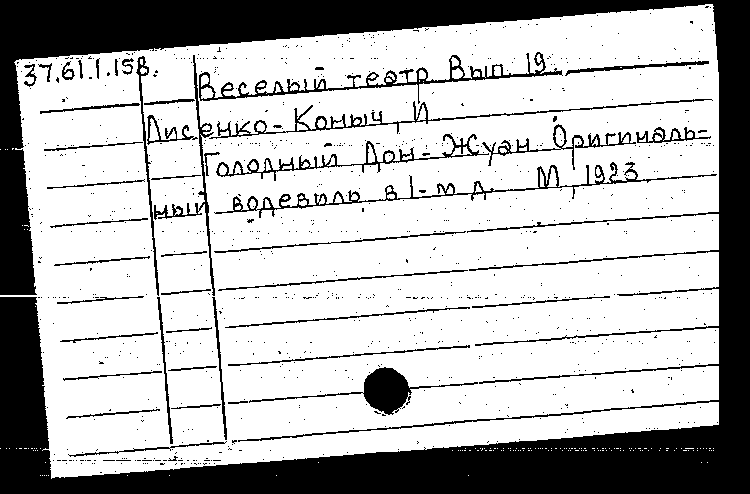 37.61.1.158.
Веселый театр Вып. 19.
Лисенко-Коныч, И
Голодный Дон-Жуан Оригиналь=
ный водевиль в 1-м д. М, 1923.